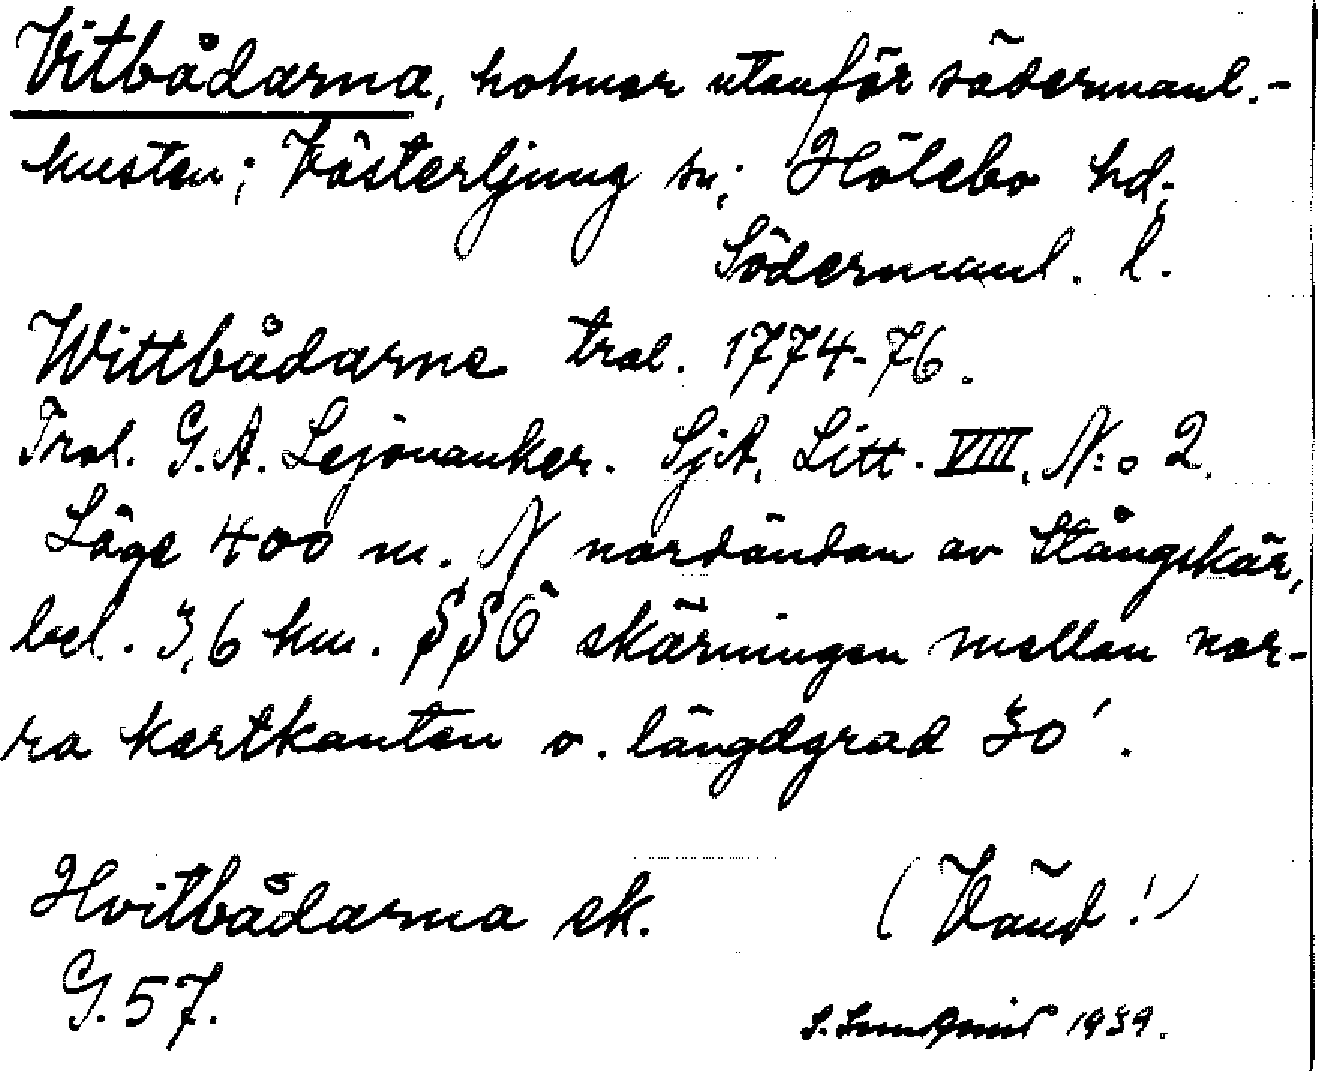 Vitbådarna, holmar utanför södermanl.-
kusten; Västerljung sn; Hölebo hd;
Södermanl. l.
Wittbådarne trol. 1774-76.
Trol. G.A. Lejonanker. SjA, Litt. VIII, N:o 2.
Läge 400 m. N nordändan av Stångskär,
bel. 3,6 km. SSÖ skärningen mellan nor-
ra kartkanten o. längdgrad 30'.
Hvitbådarna ek. (Vänd!)
G. 57.
S. 1939.